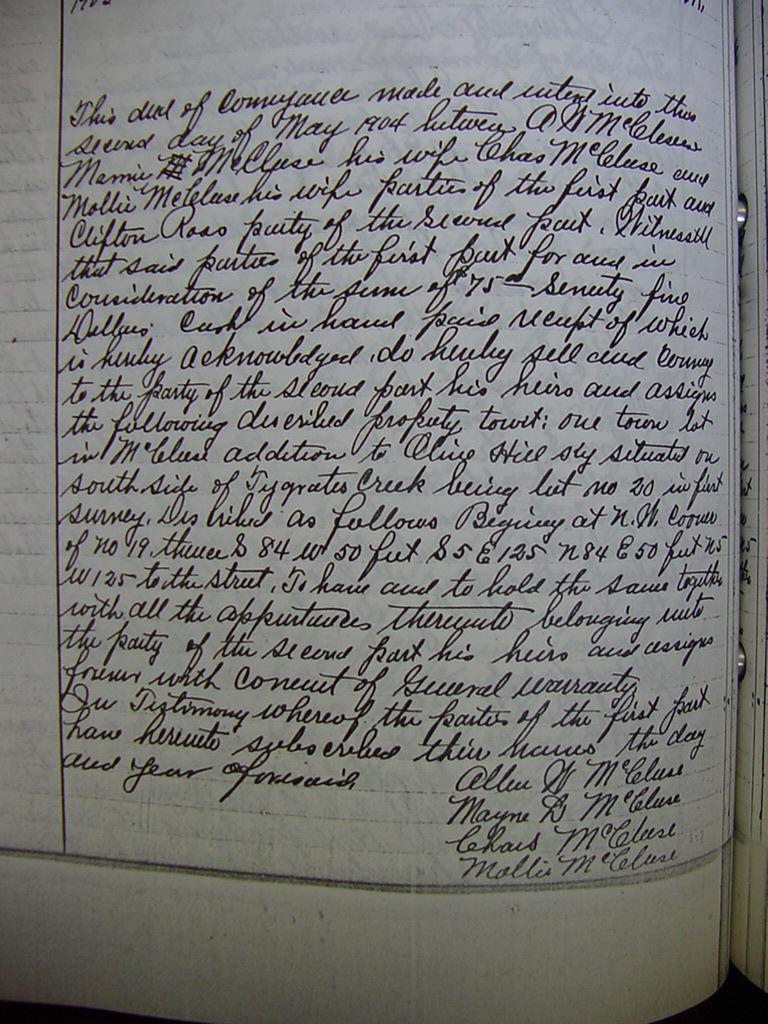 This deed of Conveyance made and entered into this
second day of May 1904 between A W McCleese
Mamie McCleese his wife Chas McCleese and
Mollie McCleese his wife parties of the first part and
Clifton Ross party of the second part, Witnesseth
that said parties of the first part for and in
Consideration of the sum of $75 00 Seventy five
Dollars Cash in hand paid receipt of which
is hereby acknowledged, do hereby sell and Convey
to the party of the second part his heirs and assigns
the following discribed property towit: one town lot
in McCleese addition to Olive Hill Ky situated on
south side of Tygrates Creek being lot no 20 in first
survey. Discribed as follows Begining at N.W. Corner
of no 19, thence S 84 W 50 feet S 5 E 125 N 84 E 50 feet N 5
W 125 to the street, To have and to hold the same together
with all the appurtances thereunto belonging unto
the party of the second part his heirs and assigns
forever with Convent of General warranty
In Tistimony whereof the parties of the first part
have hereunto subscribed their names the day
and year aforesaid,
Allen W McCleese
Mayne B McCleese
Chas McCleese
Mollie McCleese